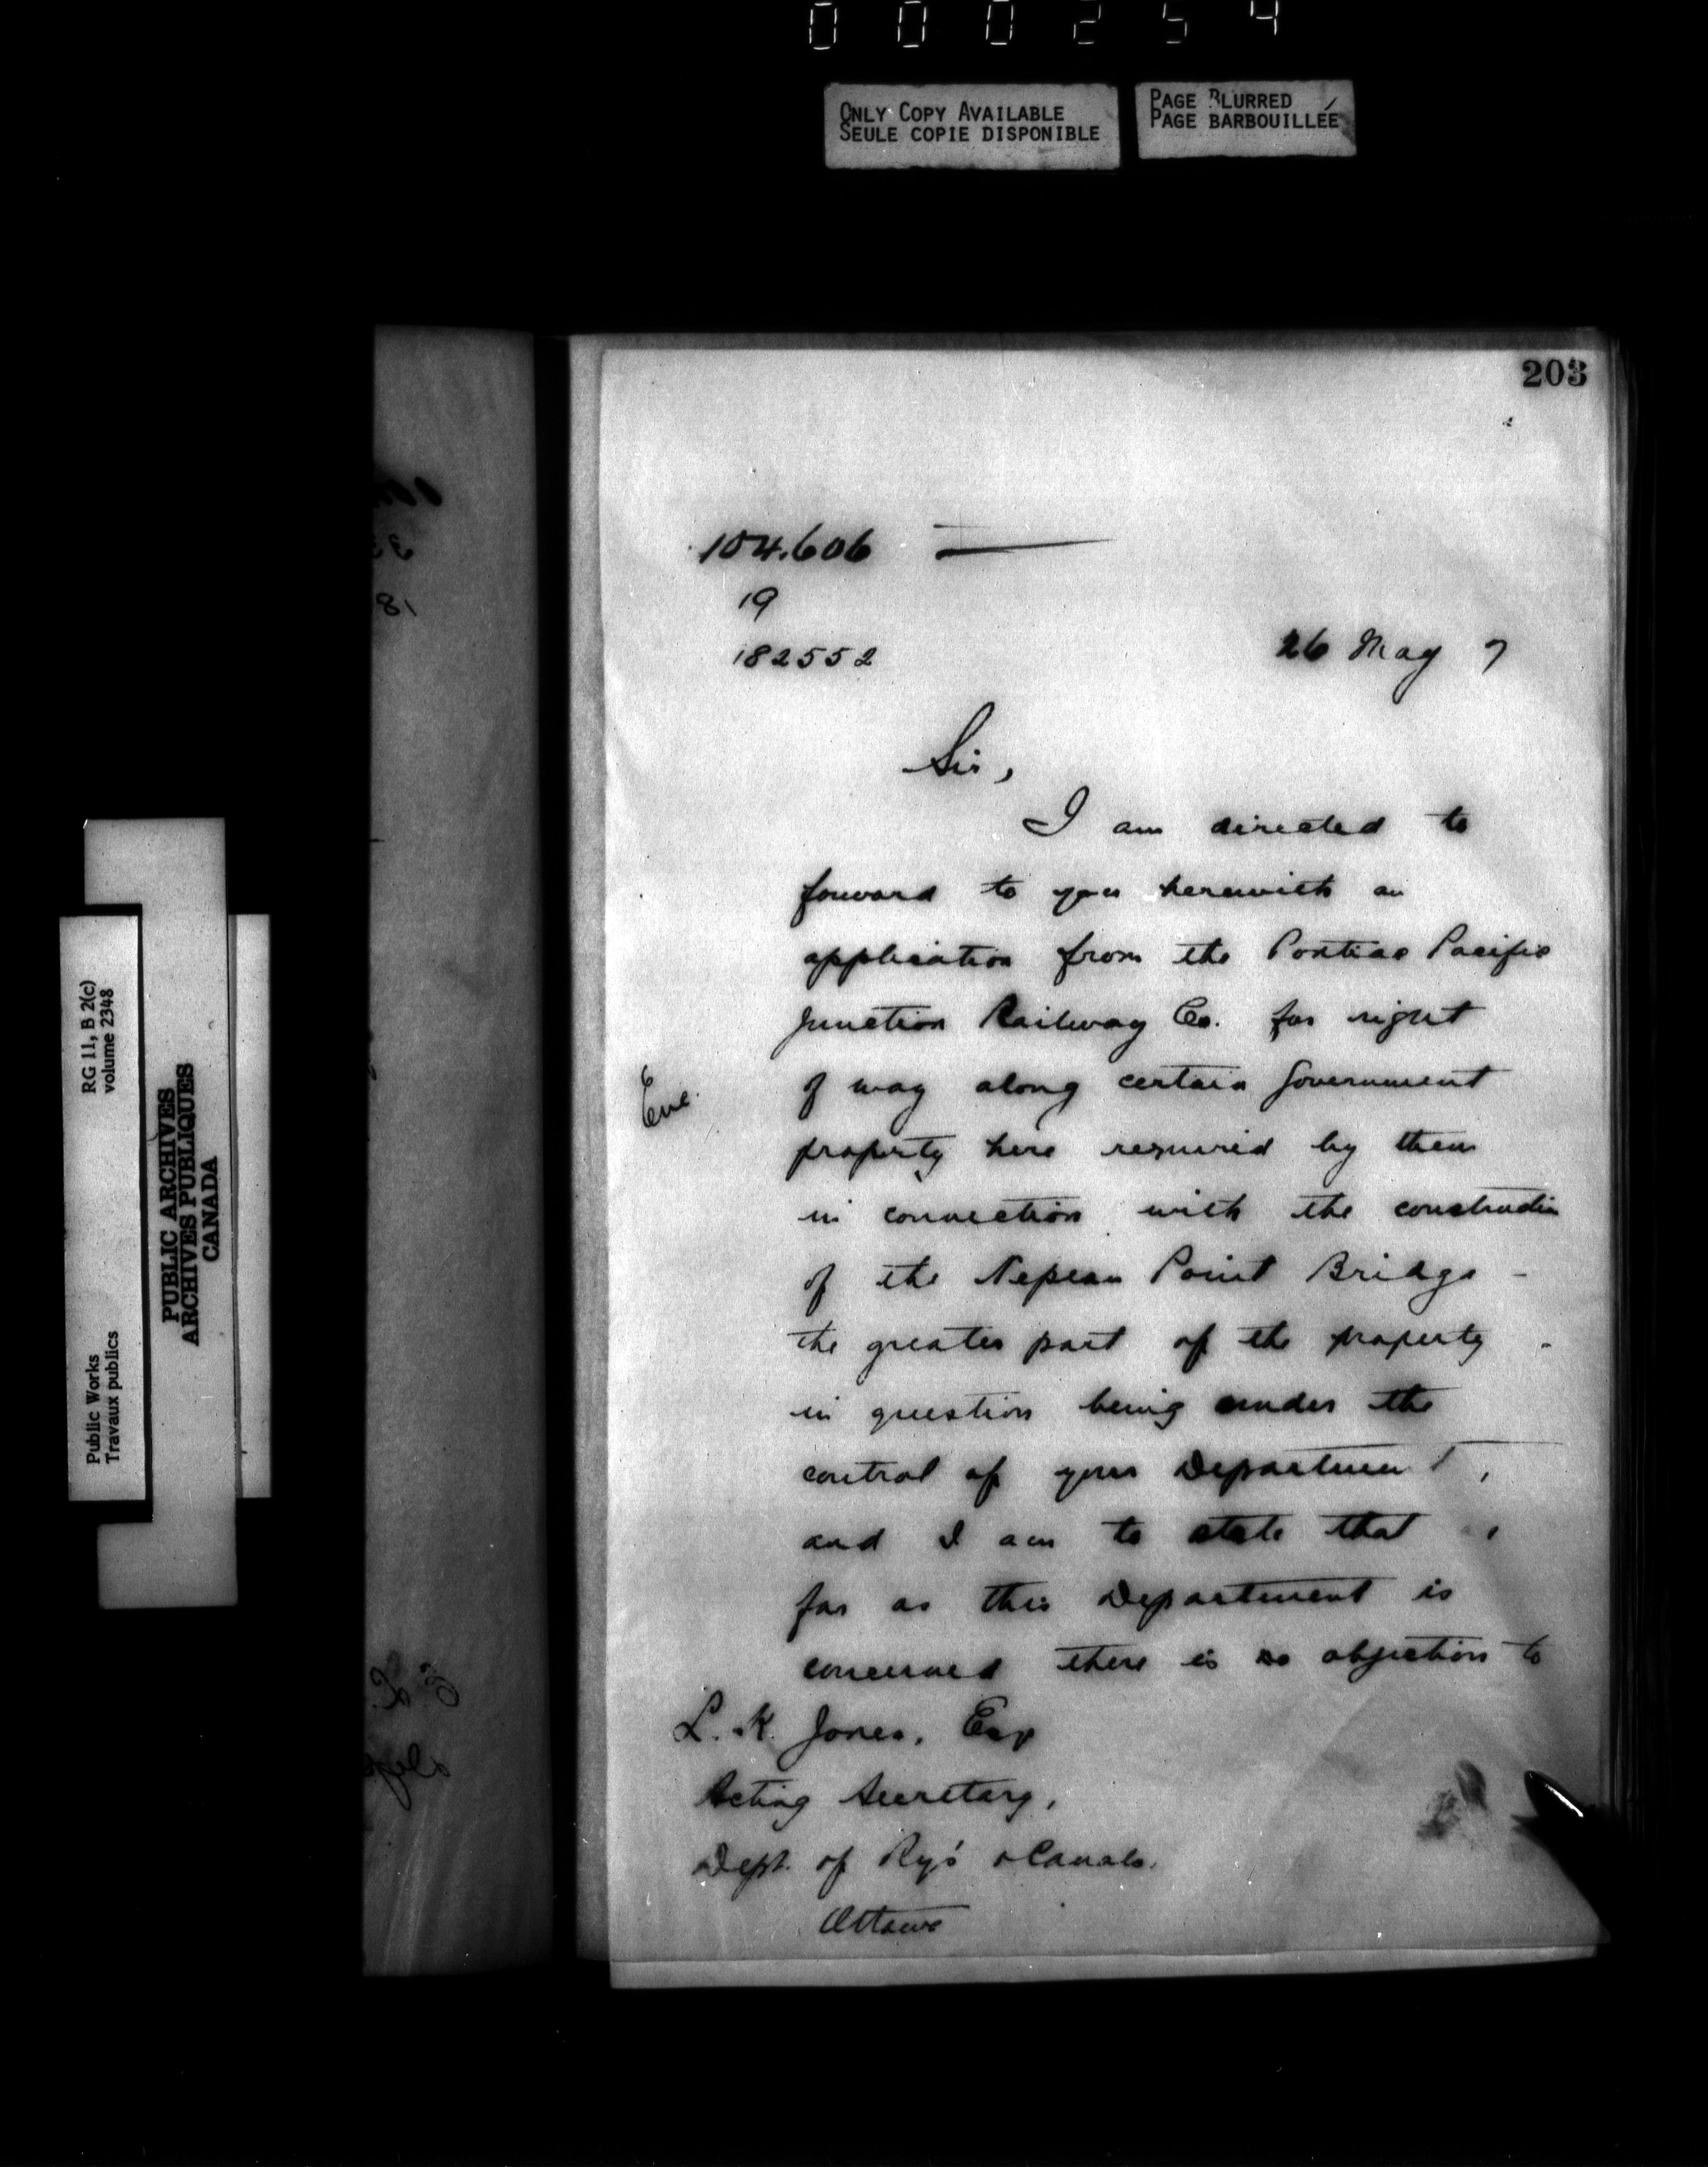 000254
ONLY COPY AVAILABLE
SEULE COPIE DISPONIBLE
PAGE BLURRED
PAGE BARBOUILLÉE
203
104.606
19
182552
26 May 7
Sir,
I am directed to
forward to you herewith an
application from the Pontiac Pacific
Junction Railway Co. for right
of way along certain Government
Enc.
property here required by them
in connection with the constructin
of the Nepean Point Bridge -
the greater part of the property
in question being under the
control of your Department,
and I am to state that
far as this Department is
concerned there is no objection to
L. K. Jones, Esq
Acting Secretary,
Dept. of Rys & Canals.
Ottawa
RG 11, B 2(c)
volume 2348
Public Works
Travaux publics
PUBLIC ARCHIVES
ARCHIVES PUBLIQUES
CANADA